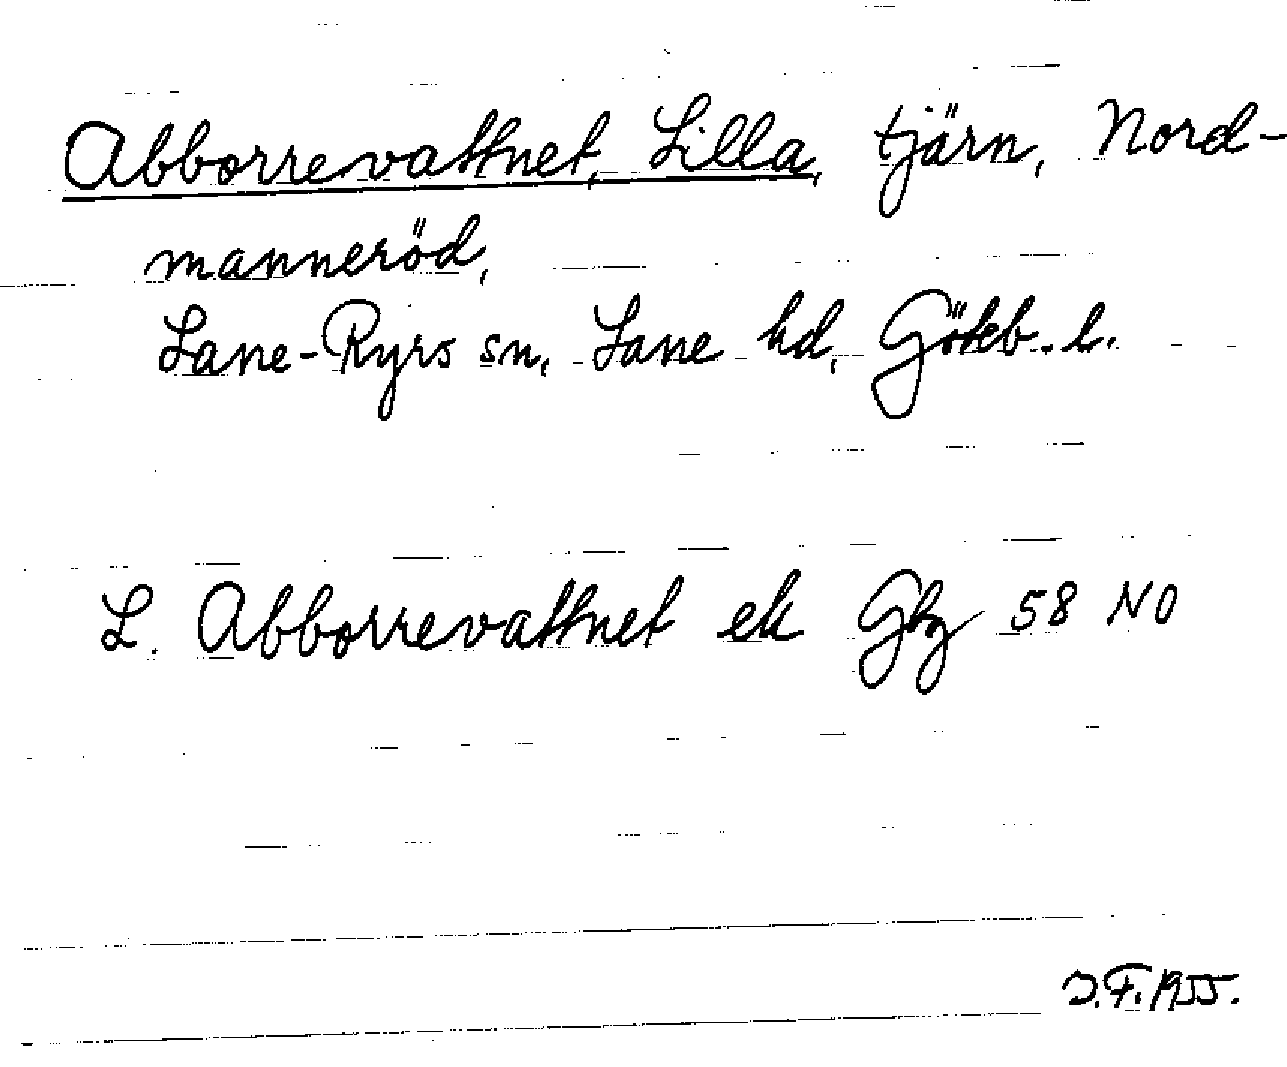 Abborrevattnet, Lilla, tjärn, Nord-
manneröd,
Lane-Ryrs sn, Lane hd, Göteb. l.
L. Abborrevattnet ek Gbg 58 NO
J.F. 1955.